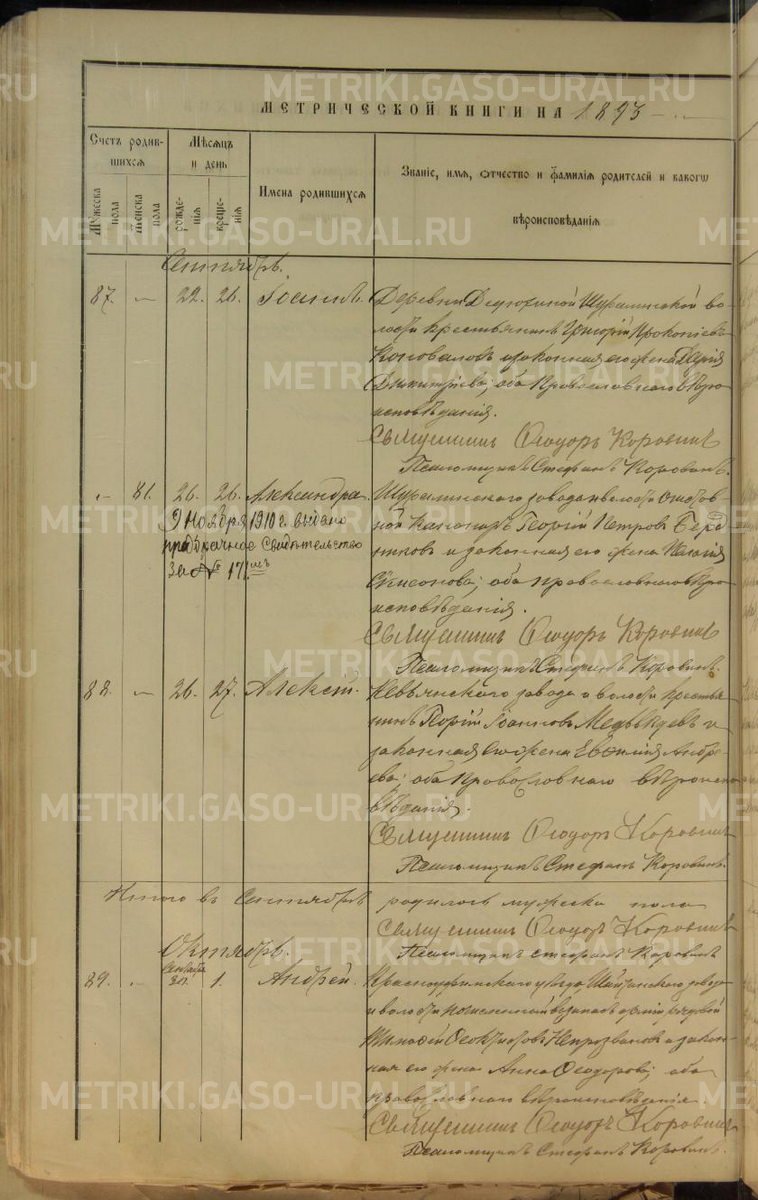 МЕТРИЧЕСКОЙ КНИГИ НА 1893
Счетъ родив-
шихся
Мѣсяцъ
и день
Имена родившихся
Званіе, имя, отчество и фамилія родителей и какого
вѣроисповѣданія
Мужеска
пола
Женска
пола
рожде-
нія
креще-
нія
Сентябрь.
87. — 22. 26. Іоаннъ. Деревни Шуралинской во-
лости крестьянинъ Григорій Прокопіевъ
Коноваловъ и законная его жена Дарія
Димитріева; оба православнаго вѣро-
исповѣданія.
Священникъ Ѳеодоръ Коровинъ
Псаломщикъ Стефанъ Коровинъ.
— 81. 26. 26. Александра. Шуралинскаго завода и волости
Георгій Петровъ Берд
никовъ и законная его жена Пелагія
; оба православнаго вѣро-
исповѣданія.
9 Ноября 1910 г. выдано
предбрачное свидѣтельство
за № 171
Священникъ Ѳеодоръ Коровинъ
Псаломщикъ Стефанъ Коровинъ.
88. — 26. 27. Алексій. Невьянскаго завода и волости крестья-
нинъ Георгій Іоанновъ Медвѣдевъ и
законная его жена Евѳимія Андре-
ева; оба православнаго вѣроиспо-
вѣданія.
Священникъ Ѳеодоръ Коровинъ
Псаломщикъ Стефанъ Коровинъ.
Итого въ Сентябрѣ родилось мужеска пола
Священникъ Ѳеодоръ Коровинъ
Псаломщикъ Стефанъ Коровинъ
Октябрь.
89. — Сентября 30. 1. Андрей. Красноуфимскаго уѣзда Шайтанскаго завода
и волости запасъ арміи рядовой
Тимоѳей Ѳеоктистовъ Непрозвановъ и закон-
ная его жена Анна Ѳеодорова; оба
православнаго вѣроисповѣданія.
Священникъ Ѳеодоръ Коровинъ
Псаломщикъ Стефанъ Коровинъ.
METRIKI.GASO-URAL.RU